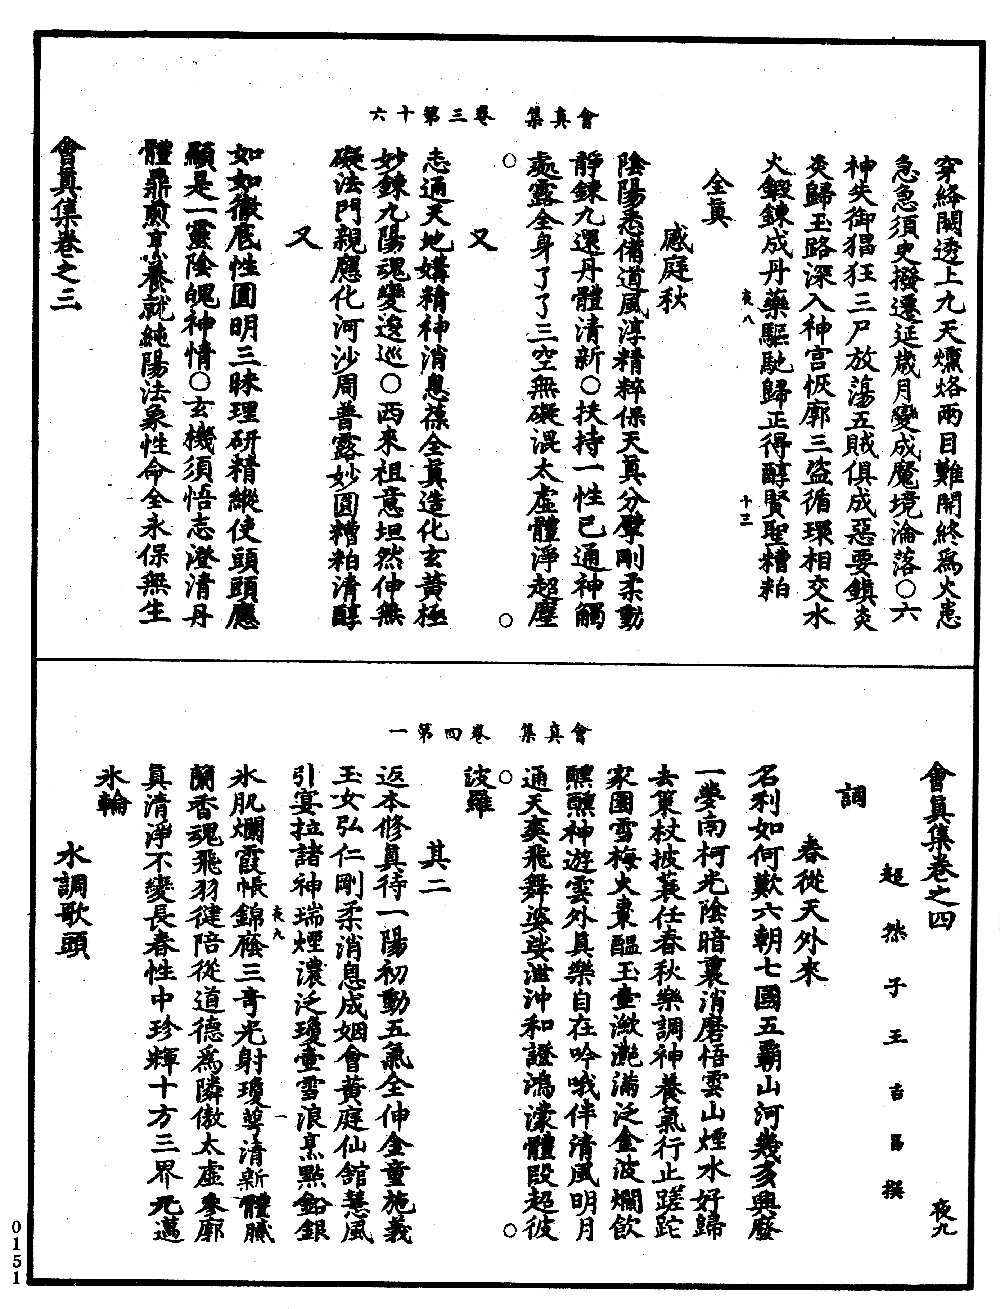 會真集　卷三第十六
穿絳闕透上九天爊烙兩目難開終爲火患
急急須史撥遷延歲月變成魔境淪落○六
神失御猖狂三尸放蕩五賊俱成惡要鎖炎
炎歸玉路深入神宮恢廓三盗循環相交水
火鍛鍊成丹藥驅馳歸正得醇賢聖糟粕
亥八
十三
全真
感庭秋
陰陽悉備道風淳精粹保天真分擘剛柔動
靜鍊九還丹體清新○扶持一性已通神觸
處露全身了了三空無礙混太虛體淨超塵
○　○
又
志通天地媾精神消息葆全真造化玄黃極
妙鍊九陽魂變逡巡○西來祖意坦然伸無
礙法門親應化河沙周普露妙圓糟粕清醇
又
如如徹底性圓明三昧理研精縱使頭頭應
顯是一靈陰魄神情○玄機須悟志澄清丹
體鼎煎烹養就純陽法象性命全永保無生
會真集卷之三
會真集　卷四第一
會真集卷之四
夜九
超然子王吉昌撰
調
春從天外來
名利如何歎六朝七國五霸山河幾多興廢
一夢南柯光陰暗裏消磨悟雲山煙水好歸
去策杖披蓑任春秋樂調神養氣行止蹉跎
家園雪梅火棗醞玉壺瀲灔滿泛金波爛飲
醺醺神遊雲外真樂自在吟哦伴清風明月
通天爽飛舞婆娑泄沖和證鴻濛體段超彼
○　○
波羅
其二
返本修真待一陽初動五氣全伸金童施義
玉女弘仁剛柔消息成姻會黃庭仙舘慧風
引宴拉諸神瑞煙濃泛瓊壺雪浪烹點鉛銀
夜九
一
氷肌爛霞帳錦廕三奇光射瓊蕚清新體膩
蘭香魂飛羽健陪從道德爲隣傲太虛寥廓
真清淨不變長春性中珍輝十方三界光邁
氷輪
水調歌頭
0151